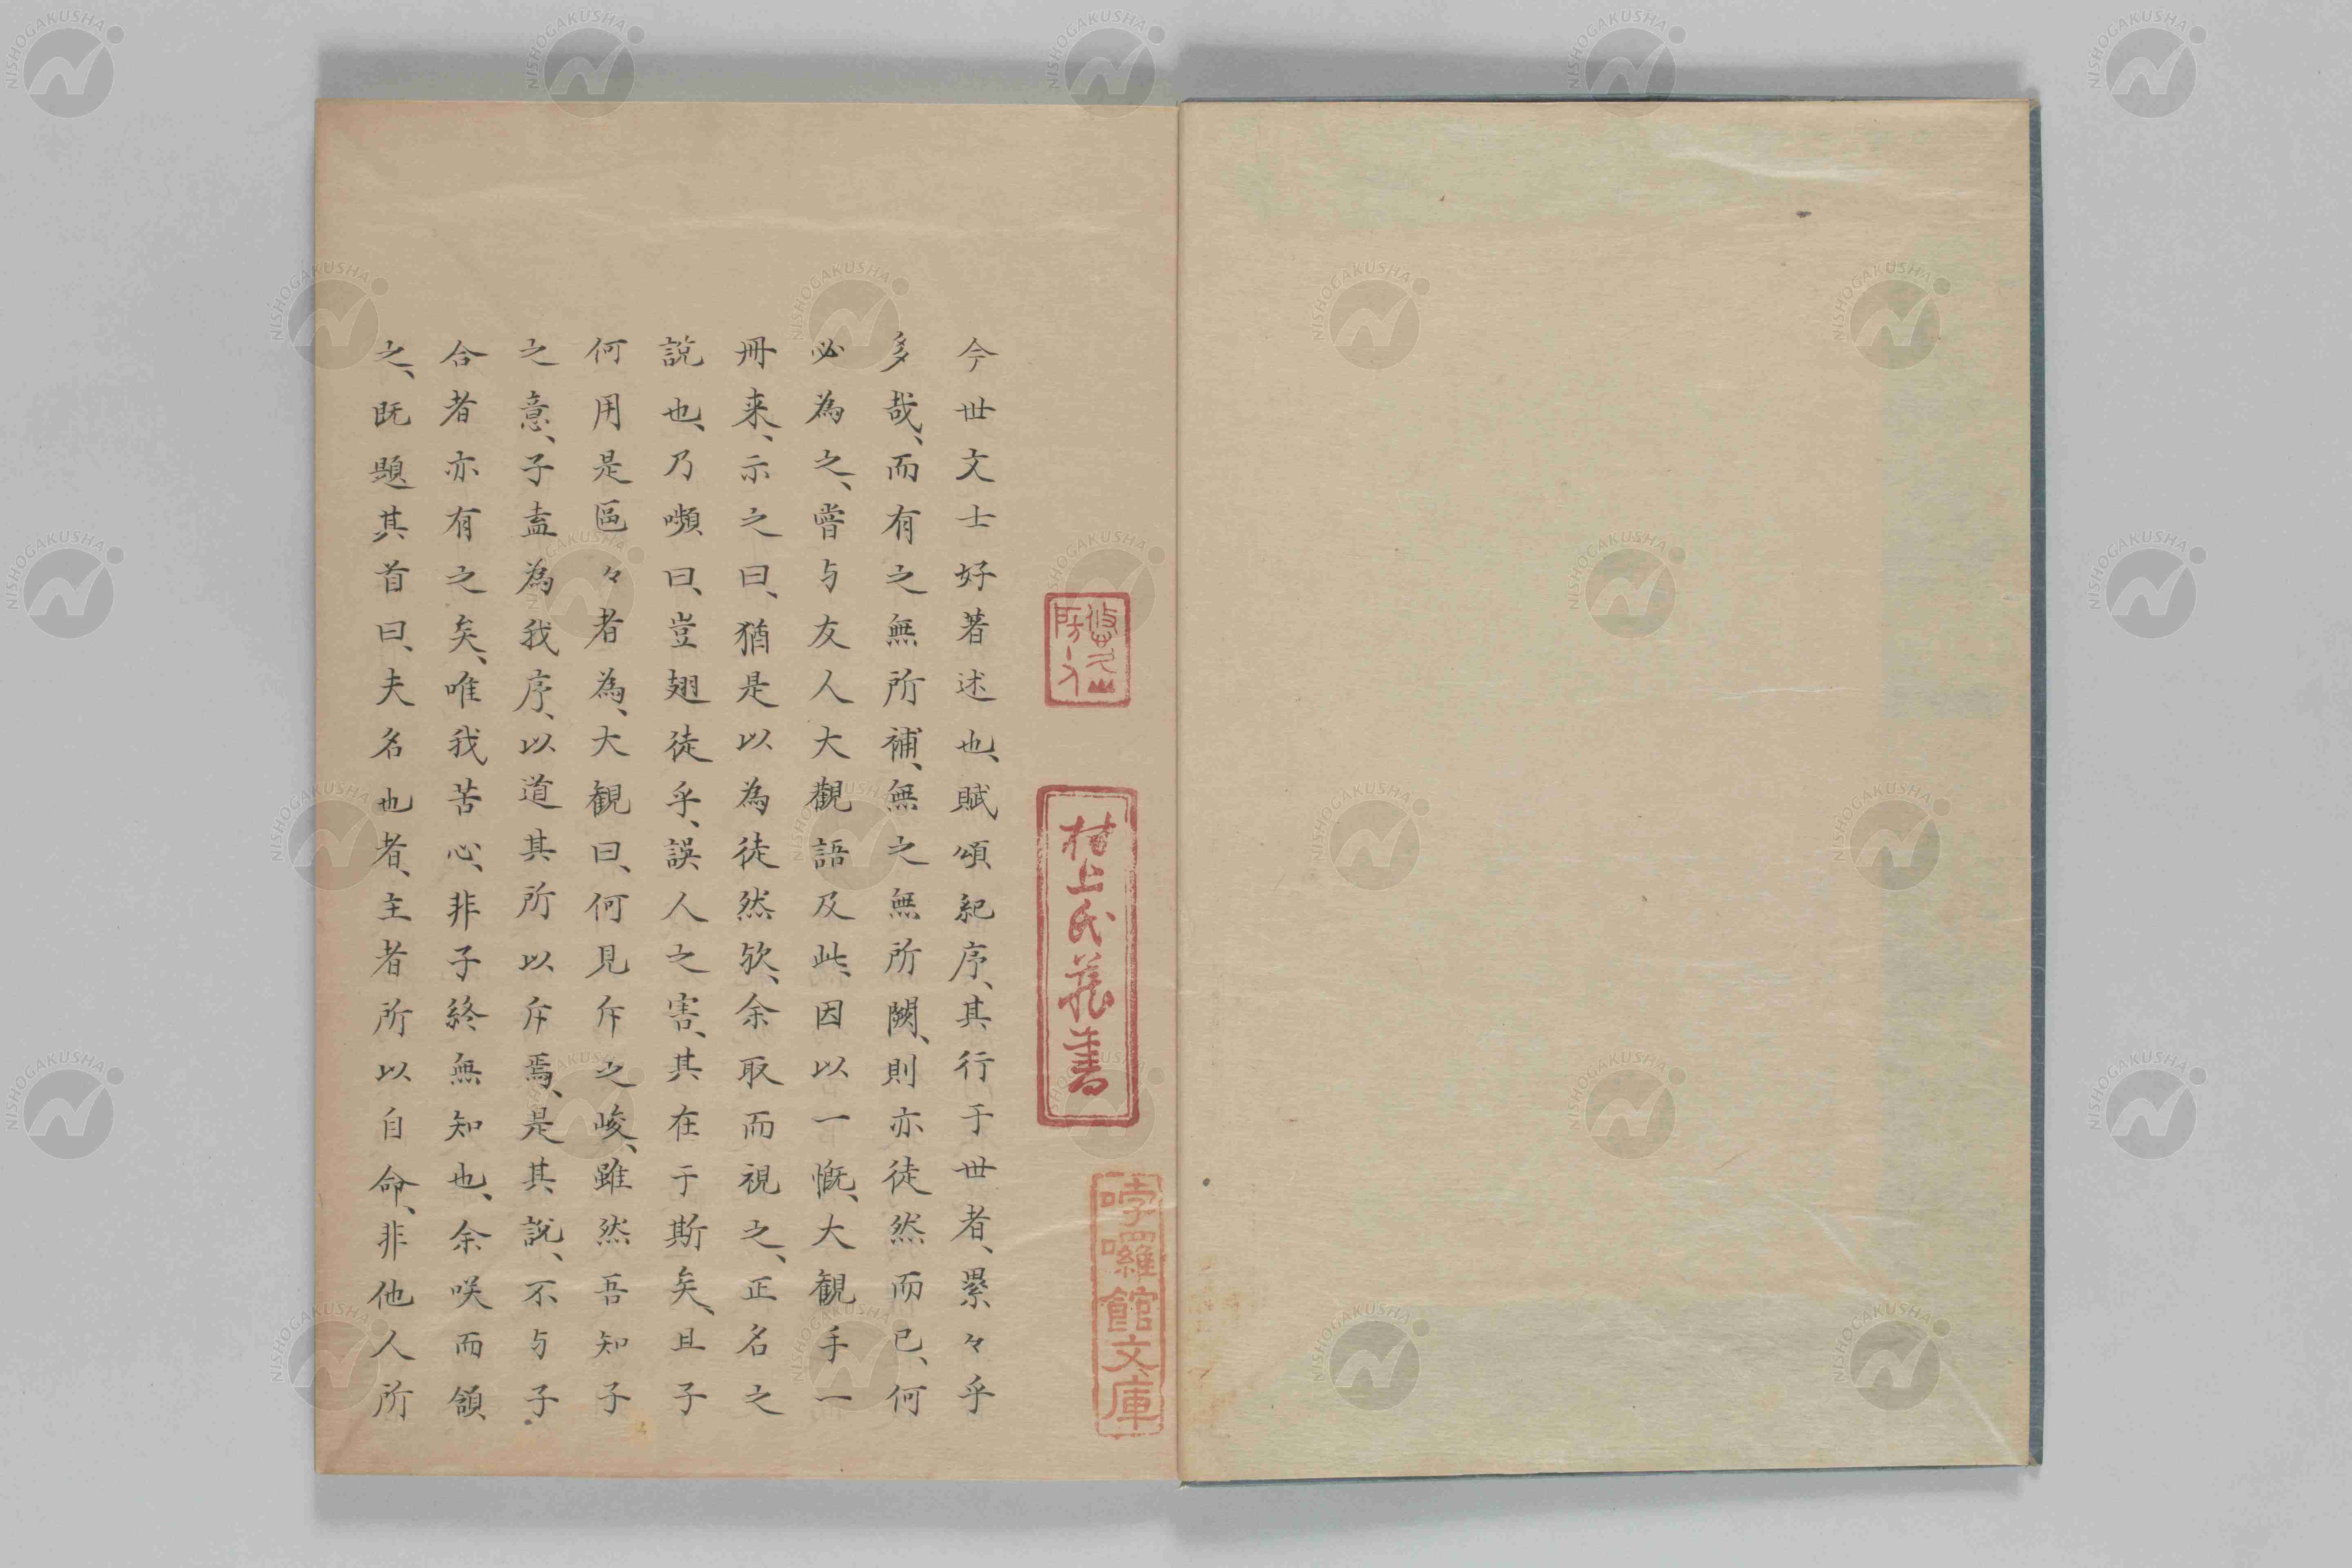 今世文士好著述也、賦頌紀序、其行于世者、累々乎
多哉、而有之無所補、無之無所闕、則亦徒然而已、何
必為之、嘗与友人大觀語及此、因以一慨、大觀手一
冊来、示之曰、猶是以為徒然欤、余取而視之、正名之
説也、乃嚬曰、豈翅徒乎、誤人之害、其在于斯矣、且子
何用是區々者為、大観曰、何見斥之峻、雖然吾知子
之意、子盍為我序、以道其所以斥焉、是其説、不与子
合者亦有之矣、唯我苦心、非子終無知也、余咲而頷
之、既題其首曰、夫名也者、主者所以自命、非他人所
村上氏蔵書
哱囉館文庫
NISHOGAKUSHA